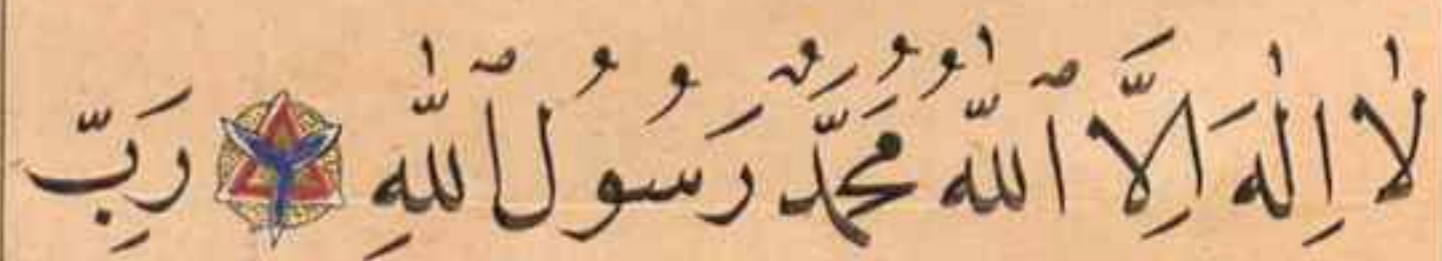 لَا اِلٰهَ اِلَّا ٱللّٰهُ مُحَمَّدٌ رَسُولُ ٱللّٰهِ رَبِّ